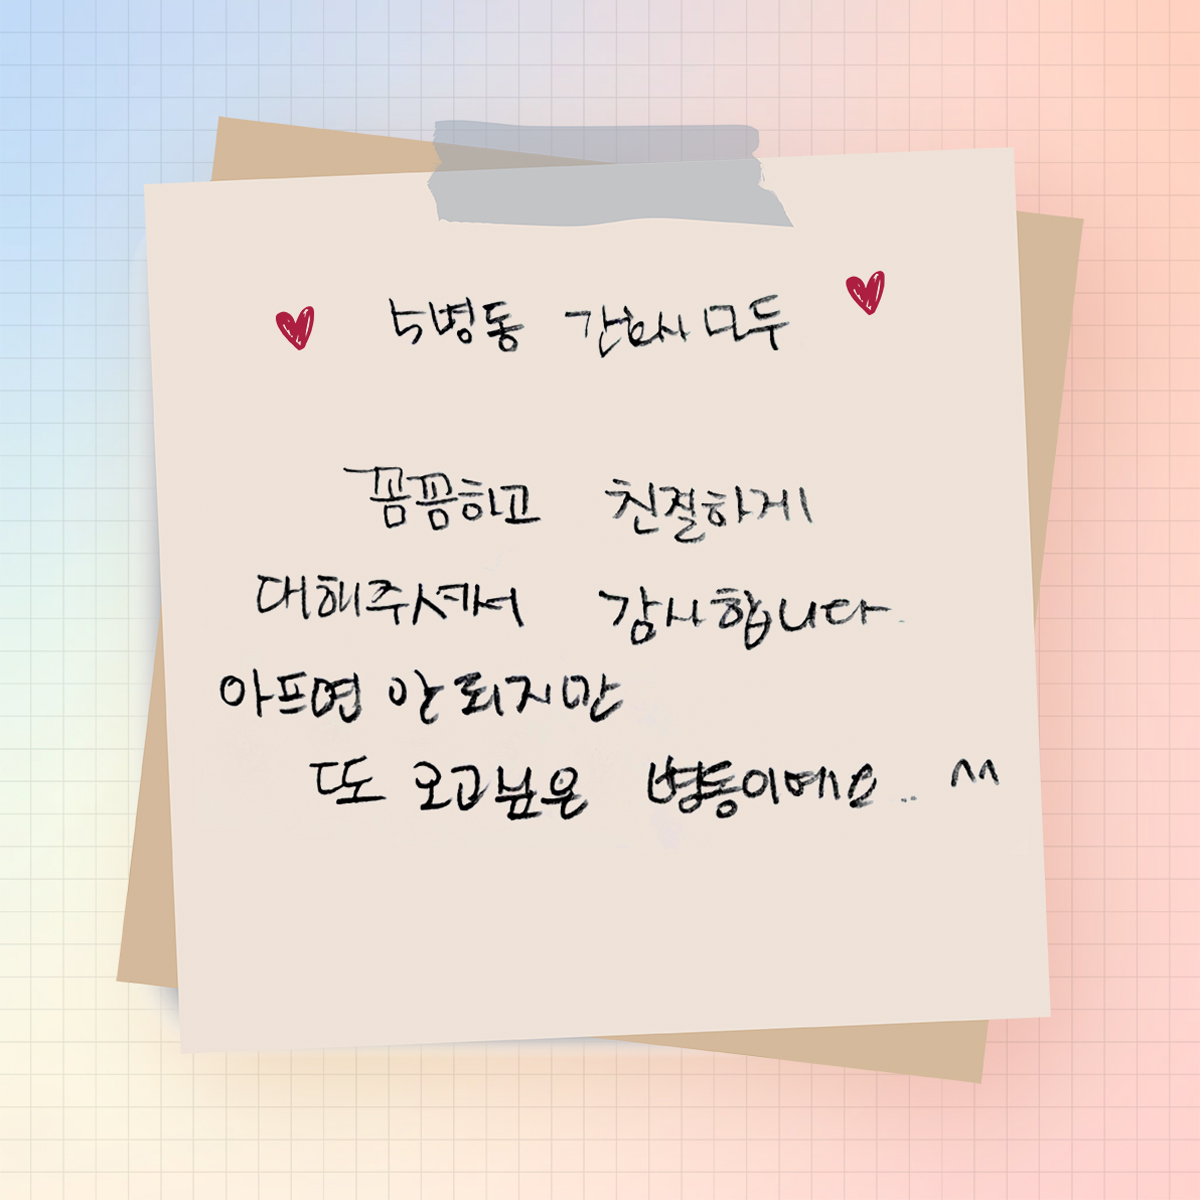 5병동 간호사 모두
꼼꼼하고 친절하게
대해주셔서 감사합니다.
아프면 안 되지만
또 오고싶은 병동이예요.. ^^